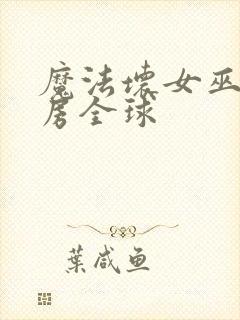 魔法壞女巫
房全球
葉咸鱼